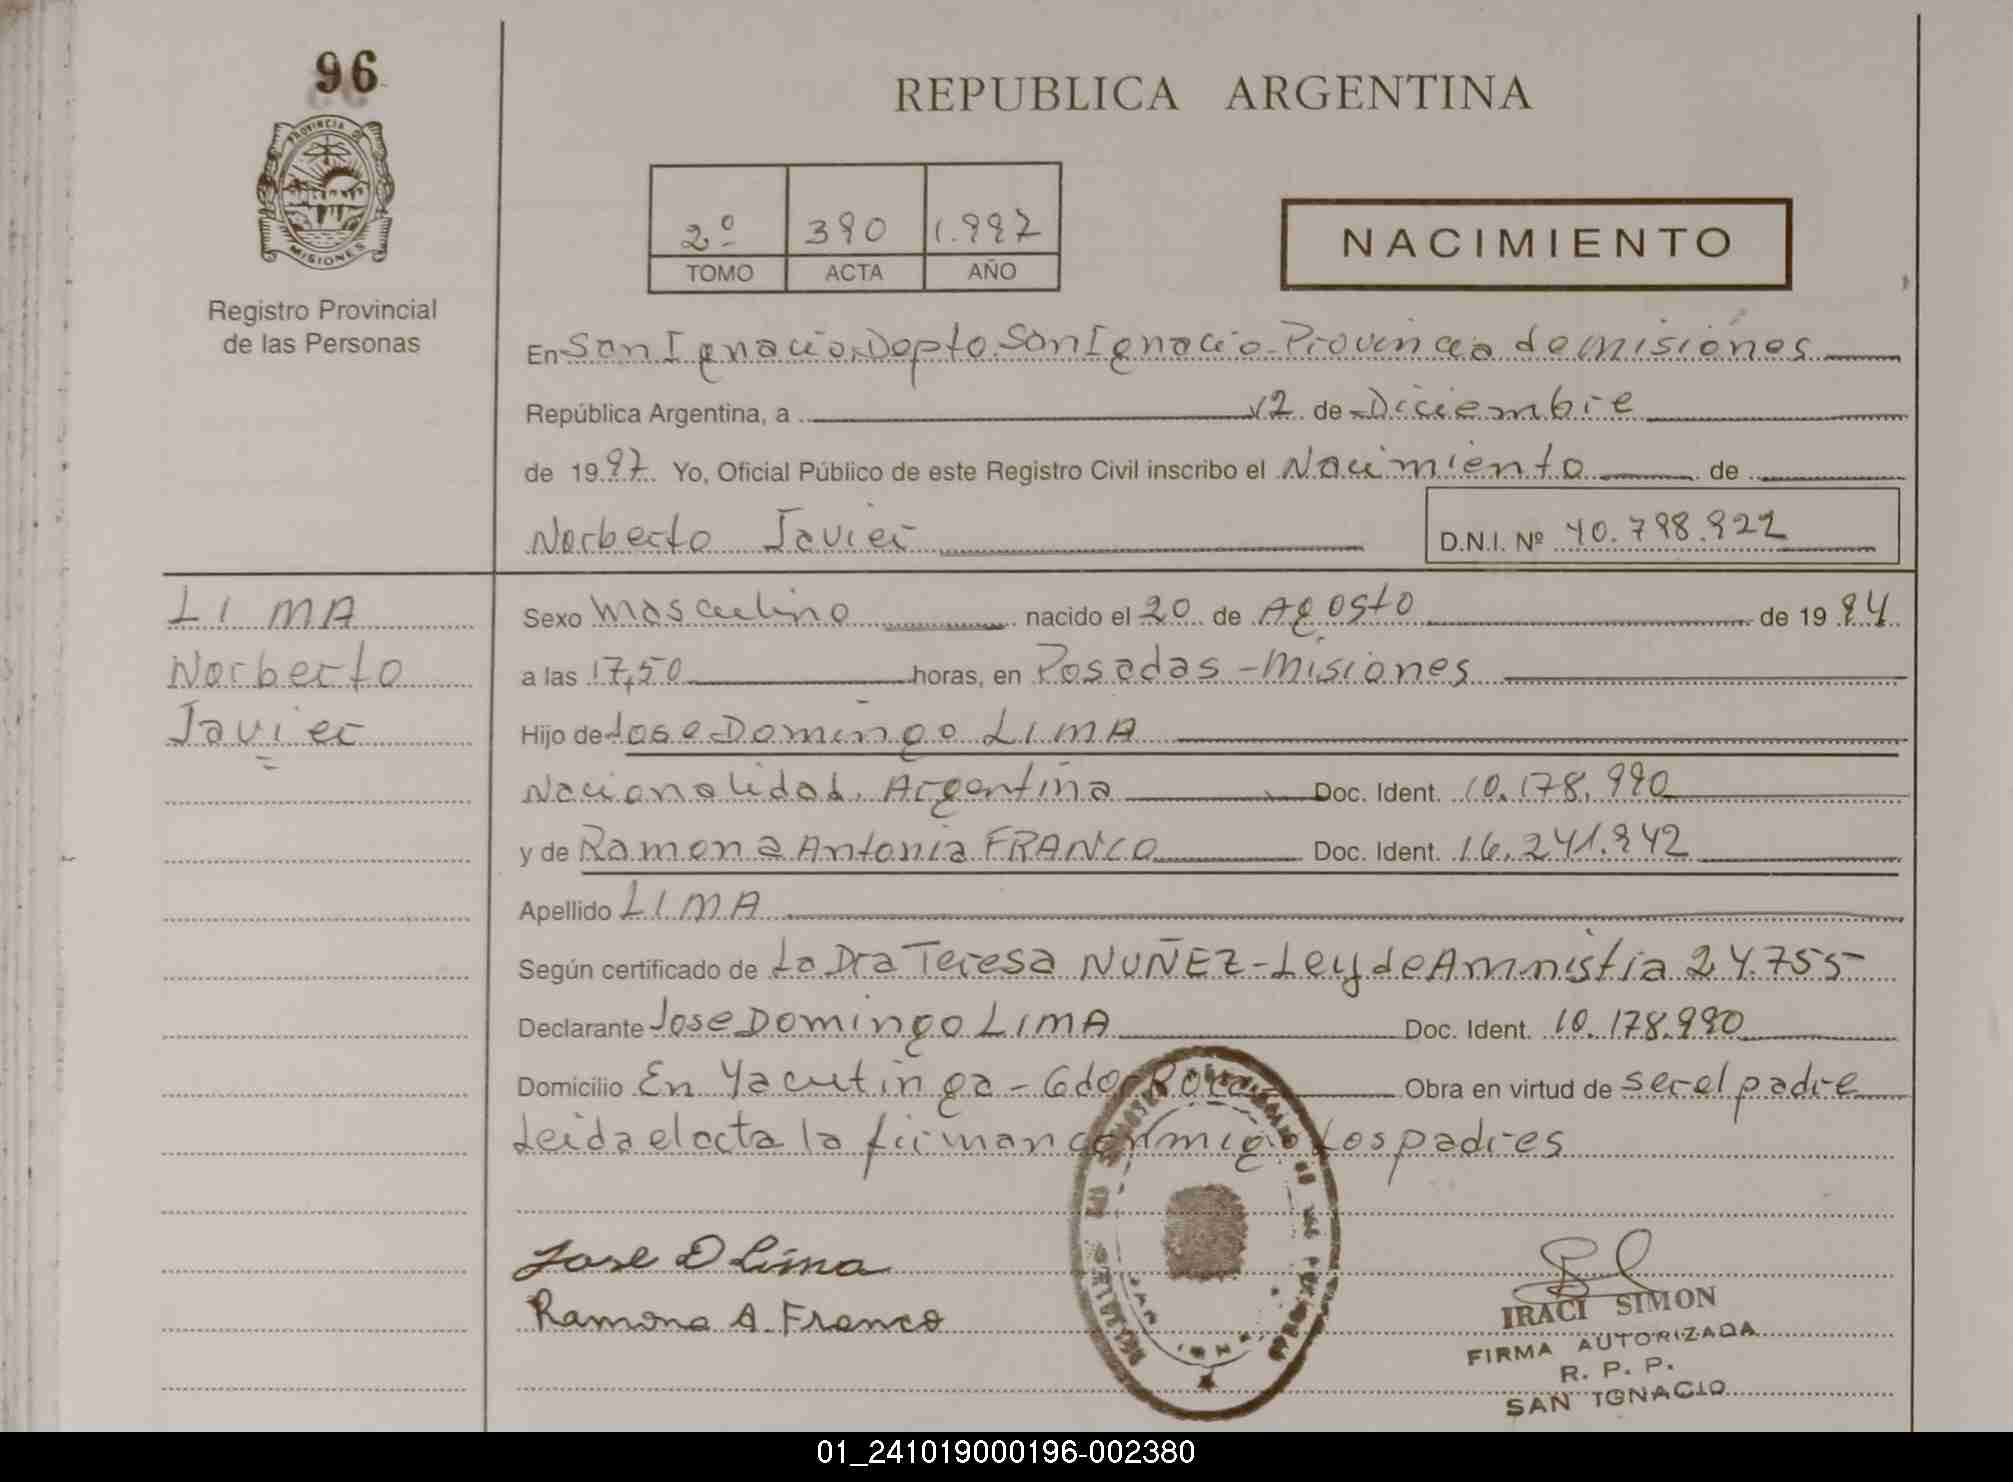 96
REPUBLICA ARGENTINA
PROVINCIA DE
MISIONES
Registro Provincial
de las Personas
2º 390 1.997
TOMO ACTA AÑO
NACIMIENTO
En San Ignacio, Depto. San Ignacio - Provincia de misiones
República Argentina, a 12 de Diciembre
de 1997 Yo, Oficial Público de este Registro Civil inscribo el Nacimiento de
Norberto Javier
D.N.I. Nº 40.798.922
LIMA
Norberto
Javier
Sexo masculino nacido el 20 de Agosto de 1994
a las 17,50 horas, en Posadas - Misiones
Hijo de Jose Domingo LIMA
Nacionalidad. Argentina Doc. Ident. 10.178.990
y de Ramona Antonia FRANCO Doc. Ident. 16.241.942
Apellido LIMA
Según certificado de La Dra Teresa NUÑEZ - Ley de Amnistia 24.755-
Declarante Jose Domingo LIMA Doc. Ident. 10.178.990
Domicilio En Yacutinga - Gdor Roca Obra en virtud de ser el padre
Leida el acta la firman conmigo Los padres
Jose D Lima
Ramona A. Franco
IRACI SIMON
FIRMA AUTORIZADA
R. P. P.
SAN IGNACIO
01_241019000196-002380